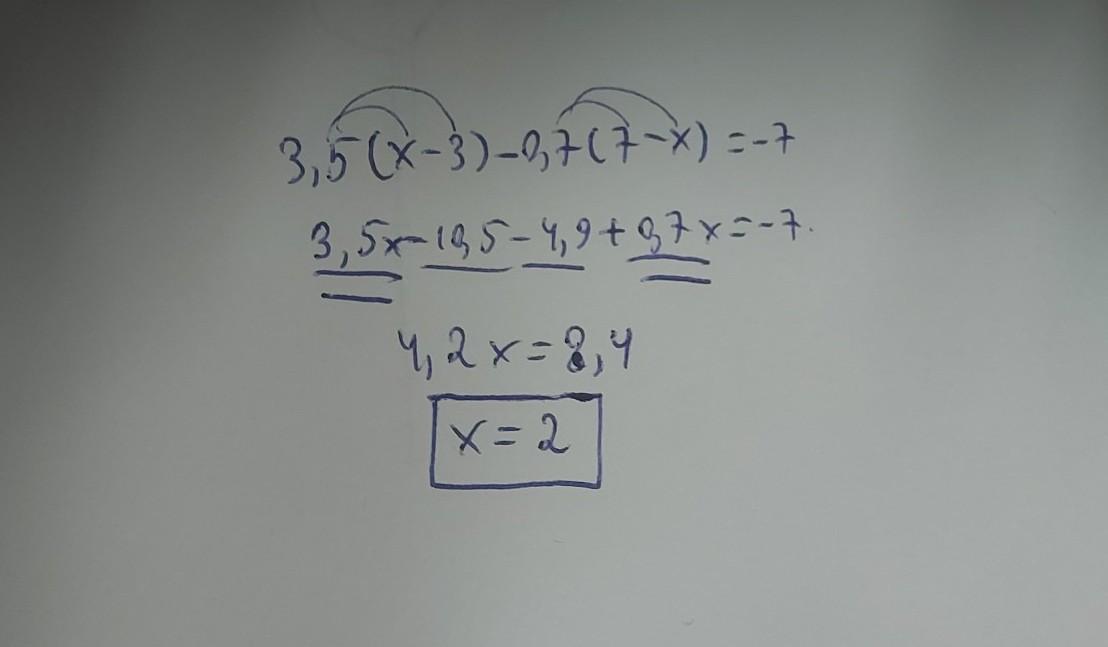 3,5(x-3)-0,7(7-x)=-7
3,5x-10,5-4,9+0,7x=-7.
4,2x=8,4
x=2